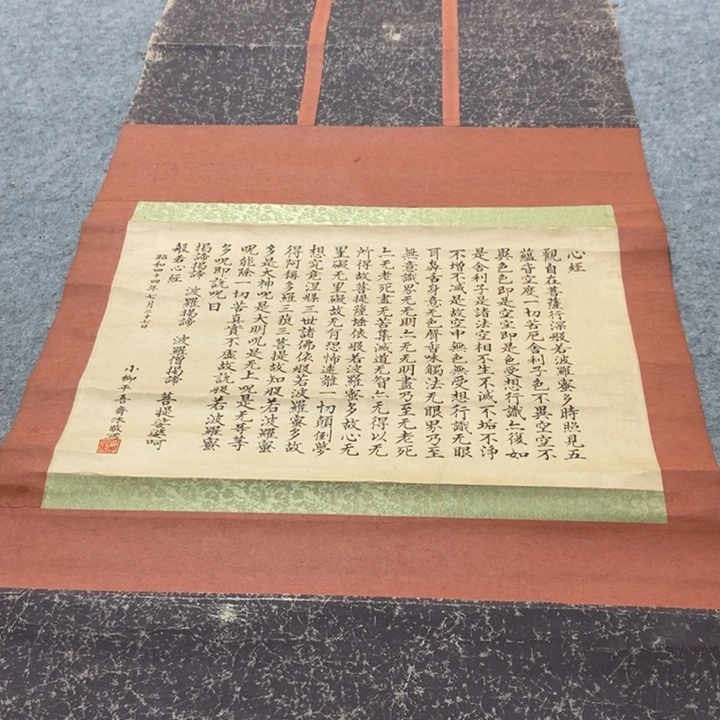 心經
觀自在菩薩行深般若波羅蜜多時照見五
蘊皆空度一切苦厄舍利子色不異空空不
異色色即是空空即是色受想行識亦復如
是舍利子是諸法空相不生不滅不垢不淨
不增不減是故空中無色無受想行識无眼
耳鼻舌身意无色聲香味觸法无眼界乃至
無意識界无无明亦无无明盡乃至无老死
亦无老死盡无苦集滅道无智亦无得以无
所得故菩提薩埵依般若波羅蜜多故心无
罣礙无罣礙故无有恐怖遠離一切顛倒夢
想究竟涅槃三世諸佛依般若波羅蜜多故
得阿耨多羅三藐三菩提故知般若波羅蜜
多是大神呪是大明呪是无上呪是无等等
呪能除一切苦真實不虛故說般若波羅蜜
多呪即說呪曰
揭諦揭諦 波羅揭諦 波羅僧揭諦 菩提娑婆呵
般若心經
昭和四十四年七月二十七日
小柳平吾齋沐敬寫